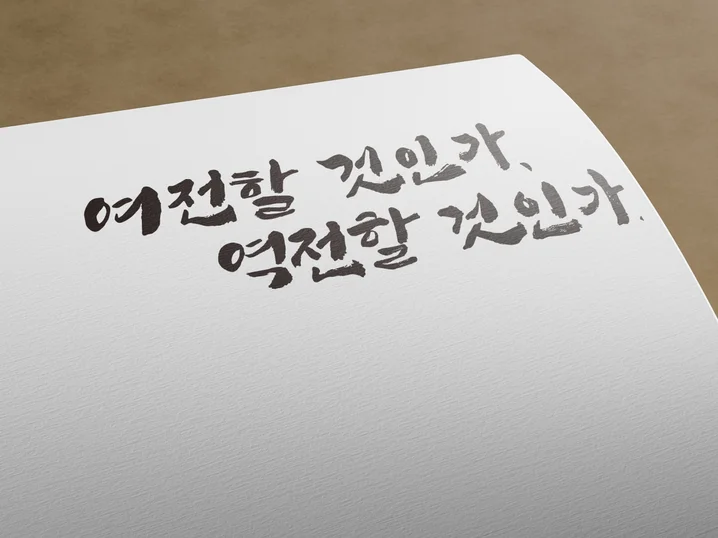 여전할 것인가,
역전할 것인가.